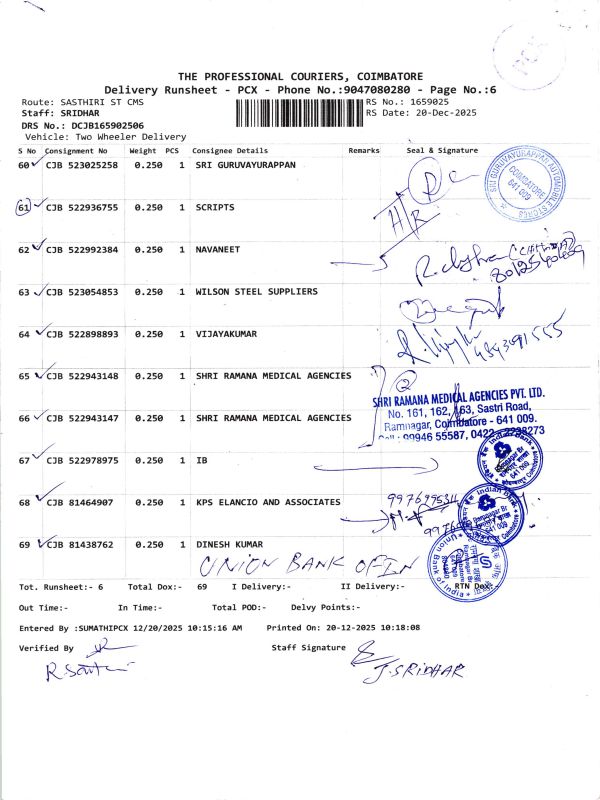 THE PROFESSIONAL COURIERS, COIMBATORE
Delivery Runsheet - PCX - Phone No.:9047080280 - Page No.:6
Route: SASTHIRI ST CMS
Staff: SRIDHAR
DRS No.: DCJB165902506
Vehicle: Two Wheeler Delivery
RS No.: 1659025
RS Date: 20-Dec-2025
S No Consignment No Weight PCS Consignee Details Remarks Seal & Signature
60 CJB 523025258 0.250 1 SRI GURUVAYURAPPAN
SRI GURUVAYURAPPAN AUTOMOBILE STORES
COIMBATORE
641 009
61 CJB 522936755 0.250 1 SCRIPTS
62 CJB 522992384 0.250 1 NAVANEET
63 CJB 523054853 0.250 1 WILSON STEEL SUPPLIERS
64 CJB 522898893 0.250 1 VIJAYAKUMAR
65 CJB 522943148 0.250 1 SHRI RAMANA MEDICAL AGENCIES
2
SHRI RAMANA MEDICAL AGENCIES PVT. LTD.
No. 161, 162, 163, Sastri Road,
Ramnagar, Coimbatore - 641 009.
Cell : 99946 55587, 0422-2238273
66 CJB 522943147 0.250 1 SHRI RAMANA MEDICAL AGENCIES
67 CJB 522978975 0.250 1 IB
Indian Bank
Ramnagar Br
641 009
68 CJB 81464907 0.250 1 KPS ELANCIO AND ASSOCIATES
Indian Bank
Ramnagar Br
641 009
69 CJB 81438762 0.250 1 DINESH KUMAR
UNION BANK OF IN
Union Bank of India
Tot. Runsheet:- 6 Total Dox:- 69 I Delivery:- II Delivery:- RTN Dox
Out Time:- In Time:- Total POD:- Delvy Points:-
Entered By :SUMATHIPCX 12/20/2025 10:15:16 AM Printed On: 20-12-2025 10:18:08
Verified By Staff Signature
J. SRIDHAR